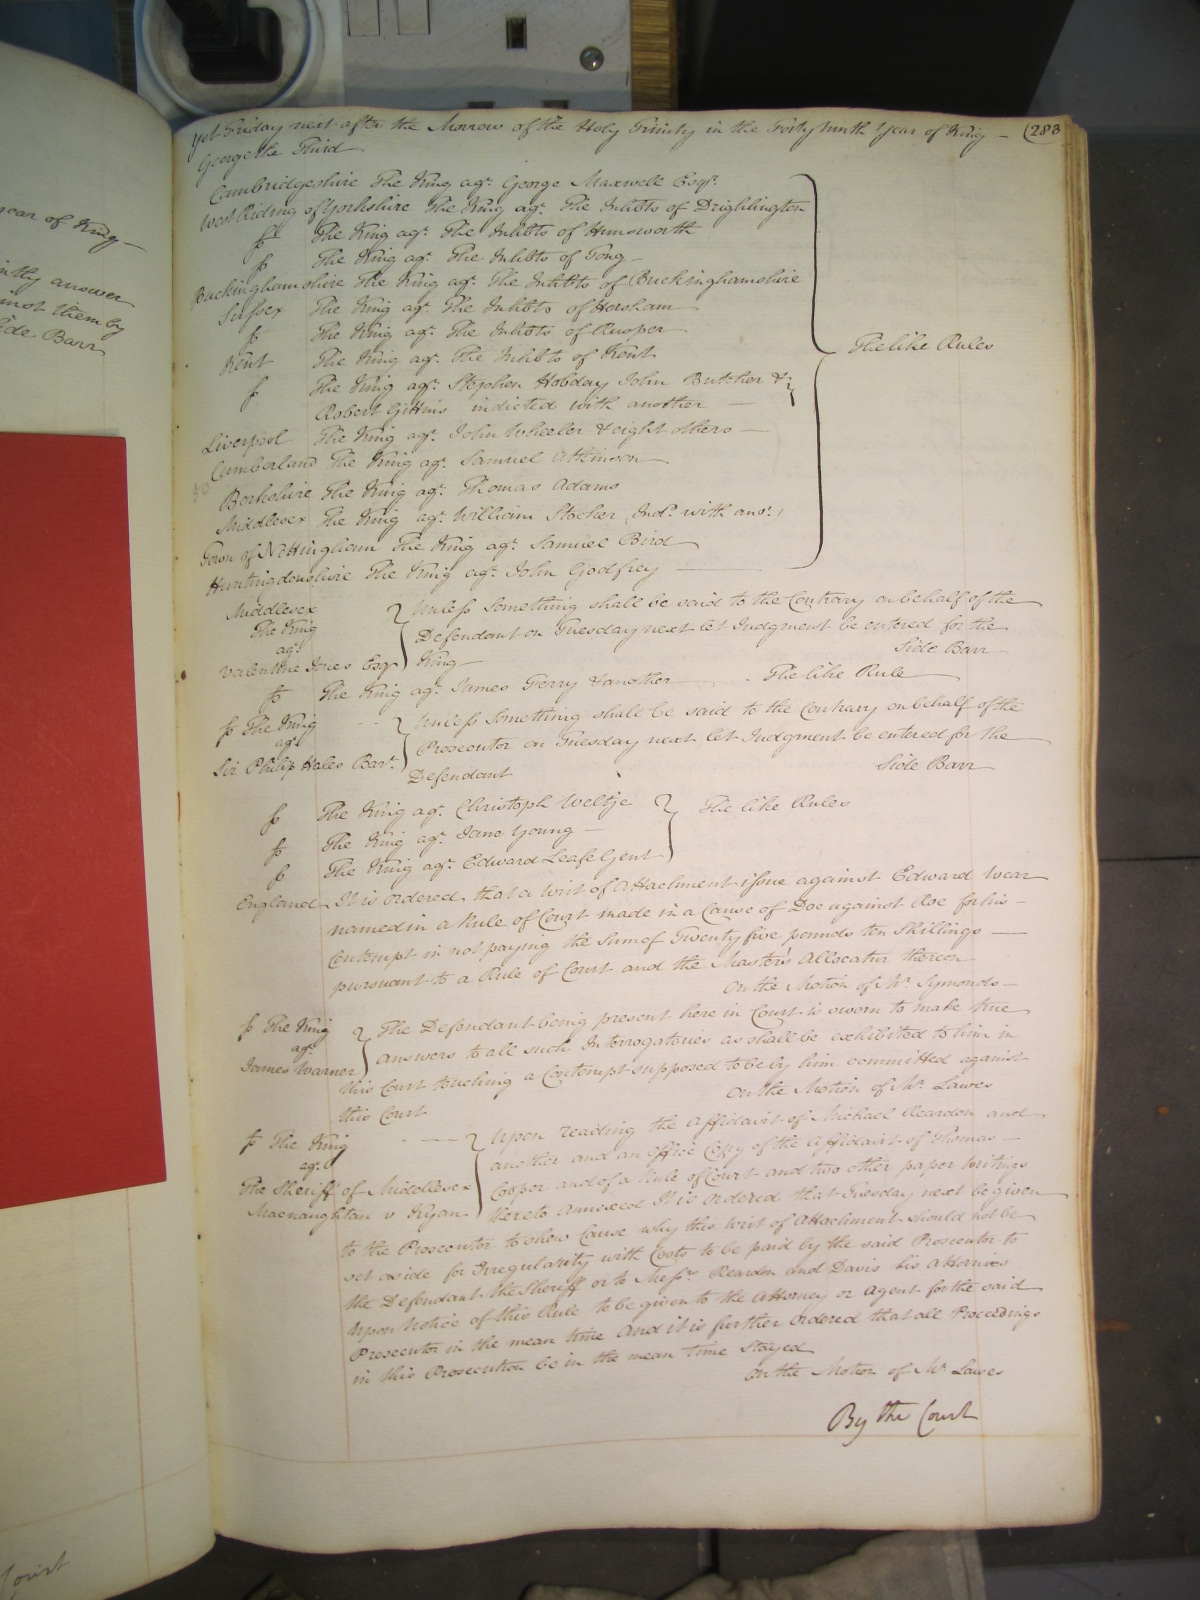 year of King
ntly answer
inst them by
Side Barr
Court
Yet Friday next after the Morrow of the Holy Trinity in the Forty ninth Year of King (283
George the Third
Cambridgeshire The King agt. George Maxwell Esqr.
West Riding of Yorkshire The King agt. The Inhbts of Drighlington
fs The King agt. The Inhbts of Hunsworth
fs The King agt. The Inhbts of Tong
Buckinghamshire The King agt. The Inhbts of Buckinghamshire
Sussex The King agt. The Inhbts of Horsham
fs The King agt. The Inhbts of Rusper
Kent The King agt. The Inhbts of Kent
The like Rules
fs The King agt. Stephen Hobday John Butcher &
Robert Gittins indicted with another
Liverpool The King agt. John Wheeler & eight others
Cumberland The King agt. Samuel Atkinson
Berkshire The King agt. Thomas Adams
Middlesex The King agt. William Stocher Indd. with anor.
Town of Nottingham The King agt. Samuel Bird
Huntingdonshire The King agt. John Godfrey
Middlesex
The King
agt.
Valentine Jones Esqr
Unless Something shall be said to the Contrary on behalf of the
Defendant on Tuesday next let Judgment be entered for the
King Side Barr
fs The King agt. James Ferry & another The like Rule
fs The King
agt.
Sir Philip Hales Bart.
Unless Something shall be said to the Contrary on behalf of the
Prosecutor on Tuesday next let Judgment be entered for the
Defendant Side Barr
fs The King agt. Christoph Weltje The like Rules
fs The King agt. Jane Young
fs The King agt. Edward Leafe Gent
England It is ordered that a Writ of Attachment issue against Edward Wear
named in a Rule of Court made in a Cause of Doe against Roe for his
Contempt in not paying the Sum of Twenty five pounds ten Shillings
pursuant to a Rule of Court and the Master's Allocatur thereon
On the Motion of Mr. Symonds
fs The King
agt.
James Warner
The Defendant being present here in Court is sworn to make true
answers to all such Interrogatories as shall be exhibited to him in
this Court touching a Contempt supposed to be by him committed against
this Court On the Motion of Mr. Lawes
fs The King
agt.
The Sheriff of Middlesex
Macnaughtan v Ryan
Upon reading the Affidavit of Michael Reardon and
another and an office Copy of the Affidavit of Thomas
Cooper and of a Rule of Court and two other paper Writings
thereto annexed It is ordered that Tuesday next be given
to the Prosecutor to shew Cause why this Writ of Attachment should not be
set aside for Irregularity with Costs to be paid by the said Prosecutor to
the Defendant the Sheriff or to Messrs. Reardon and Davis his Attornies
Upon Notice of this Rule to be given to the Attorney or Agent for the said
Prosecutor in the mean time And it is further ordered that all Proceedings
in this Prosecution be in the mean time Stayed
On the Motion of Mr Lawes
By the Court